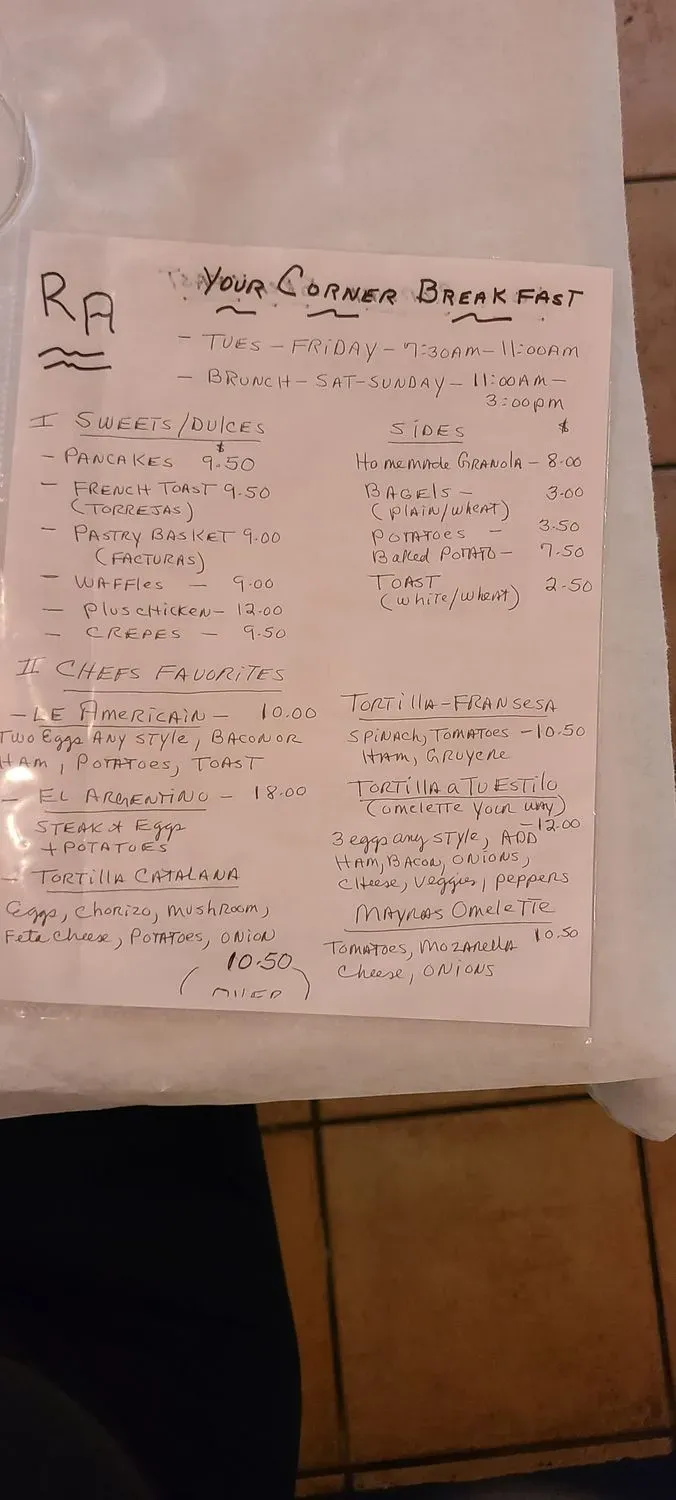 RA
YOUR CORNER BREAKFAST
- TUES - FRIDAY - 7:30AM - 11:00AM
- BRUNCH - SAT-SUNDAY - 11:00AM -
3:00pm
I SWEETS/DULCES
$
- PANCAKES 9.50
- FRENCH TOAST 9.50
(TORREJAS)
- PASTRY BASKET 9.00
(FACTURAS)
- WAFFLES - 9.00
- plus CHICKEN - 12.00
- CREPES - 9.50
SIDES $
Homemade GRANOLA - 8.00
BAGELS - 3.00
(plain/wheat)
POTATOES - 3.50
Baked POTATO - 7.50
TOAST 2.50
(white/wheat)
II CHEFS FAVORITES
- LE AMERICAIN - 10.00
TWO Eggs ANY STYLE, BACON OR
HAM, POTATOES, TOAST
- EL ARGENTINO - 18.00
STEAK + Eggs
+ POTATOES
- TORTILLA CATALANA
Eggs, CHORIZO, MUSHROOM,
Feta cheese, POTATOES, ONION
10.50
TORTILLA-FRANSESA
SPINACH, TOMATOES - 10.50
HAM, GRUYERE
TORTILLA a TU ESTILO
(omelette your way)
- 12.00
3 eggs any STYLE, ADD
HAM, BACON, ONIONS,
CHeese, Veggies, peppers
MAYRAS OMELETTE
TOMATOES, MOZARELLA 10.50
Cheese, ONIONS